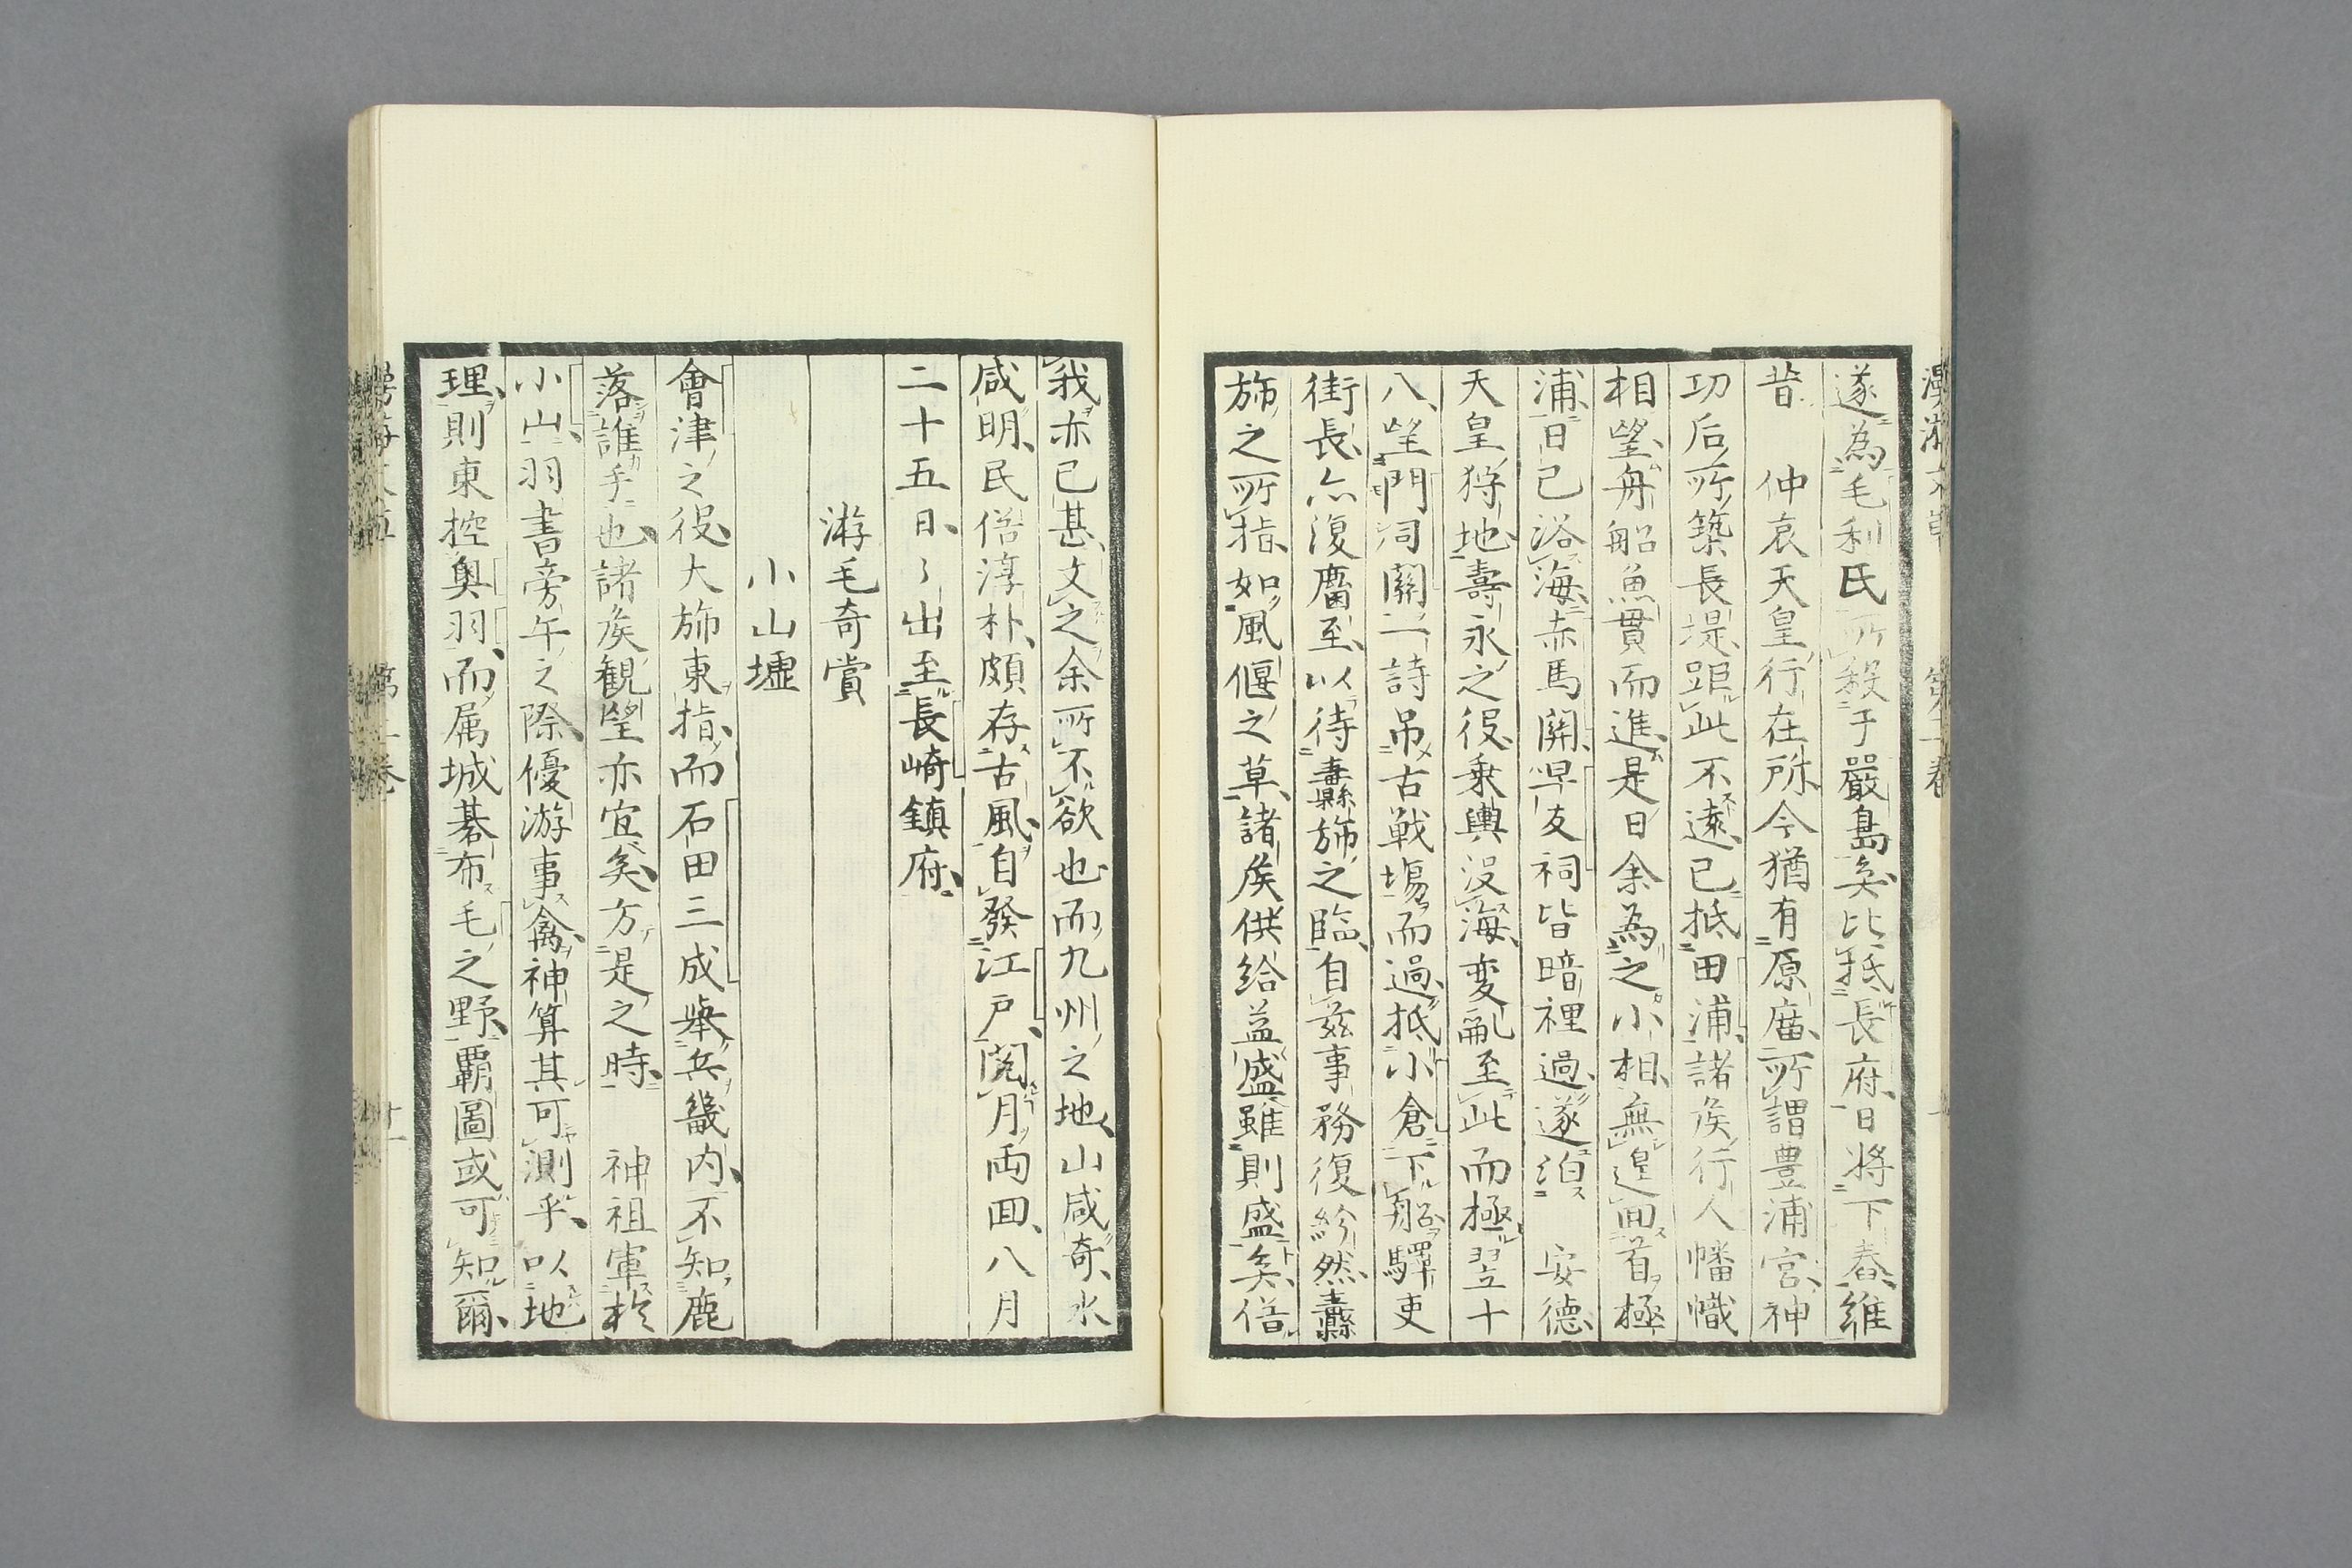 遂為毛利氏所殺于嚴島矣比抵長府日將下舂維
昔　仲哀天皇行在所今猶有原廟所謂豊浦宮神
功后所築長堤距此不遠已抵田浦諸矦行人幡幟
相望舟船魚貫而進是日余為之小相無遑回首極
浦日已浴海赤馬關早友祠皆暗裡過遂泊　安德
天皇狩地壽永之役乗輿没海変亂至此而極翌十
八望門司關一詩吊古戦塲而過抵小倉下船驛吏
街長亦復麕至以待纛斾之臨自茲事務復紛然纛
斾之所指如風偃之草諸矦供給益盛雖則盛矣偣
我亦已甚文之余所不欲也而九州之地山咸奇水
咸明民俗淳朴頗存古風自發江戸閲月両回八月
二十五日〻出至長崎鎮府
游毛奇賞
小山墟
會津之役大斾東指而石田三成舉兵畿内不知鹿
落誰手也諸矦観望亦宜矣方是之時　神祖軍於
小山羽書旁午之際優游事禽神算其可測乎以地
理則東控奥羽而属城碁布毛之野覇圖或可知爾